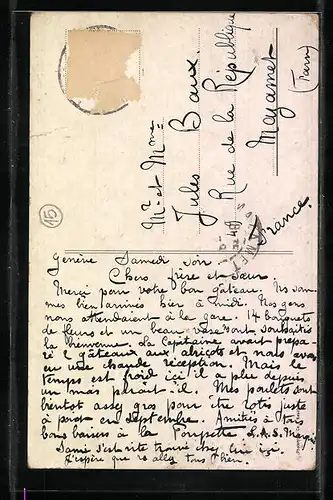 Mr et Mme
Jules Baux.
Rue de la République
Mazamet
(Tarn)
France.
15
Genève Samedi soir
Chers frère et sœur
Merci pour votre bon gâteau. Ns som-
mes bien arrivés hier à midi. Nos gens
nous attendaient à la gare. 14 bouquets
de fleurs et un beau souhaité
la bienvenue. La Capitaine avait prépa-
ré 2 gâteaux aux abricots et nous avons
eu une chaude réception. Mais le
temps est froid ici il a plu depuis
un mois paraît-il. Mes poulets sont
bientôt assez gros pour être rotis juste
à point en septembre. Amitiés à tous
bons baisers à la Poupette L.A.S.
Samé s'est vite trouvé chez lui ici.
J'espère que vs allez tous bien.